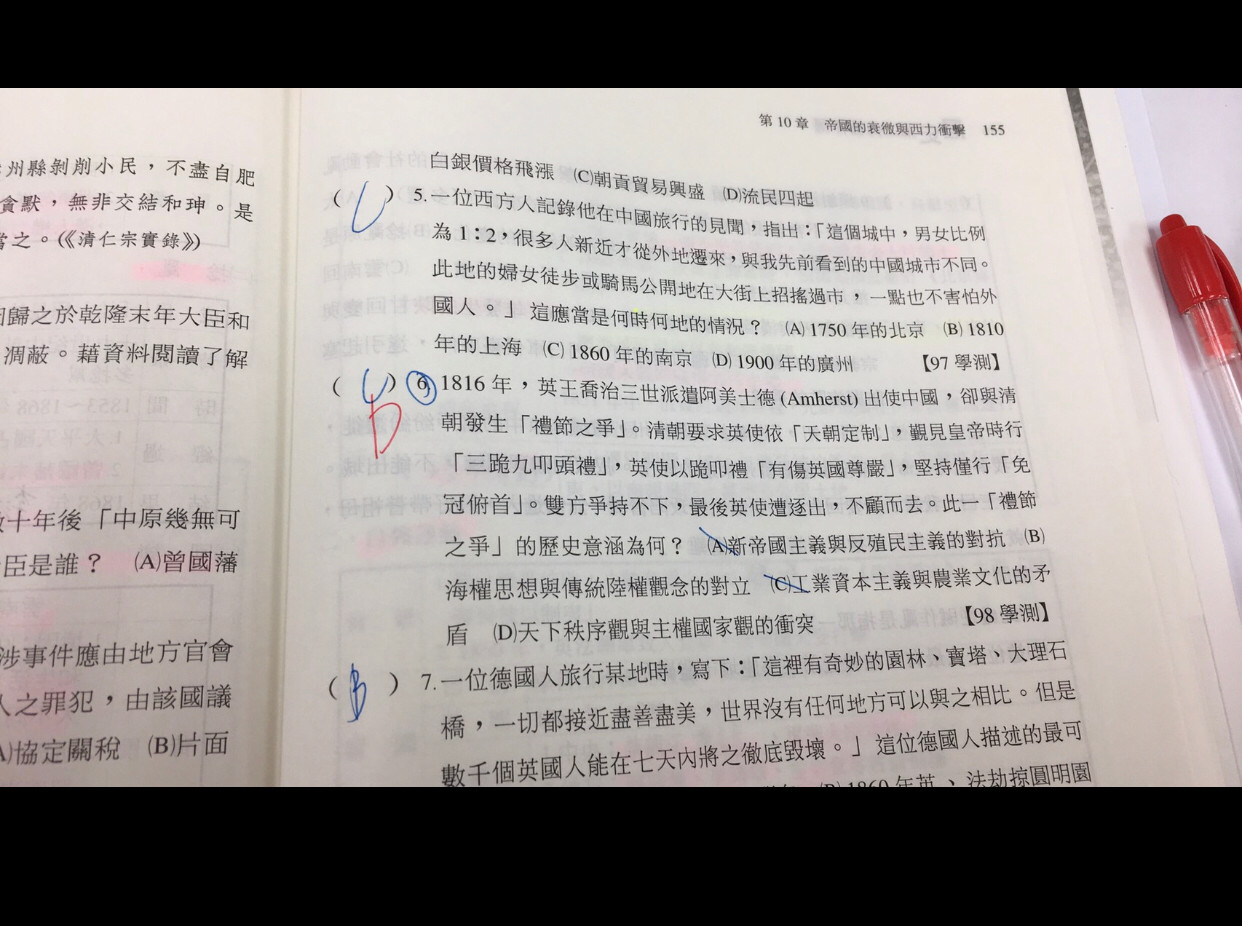 第10章 帝國的衰微與西力衝擊 155
州縣剝削小民,不盡自肥
貪默,無非交結和珅。是
當之。(《清仁宗實錄》)
歸之於乾隆末年大臣和
凋蔽。藉資料閱讀了解
十年後「中原幾無可
臣是誰? (A)曾國藩
涉事件應由地方官會
人之罪犯,由該國議
(A)協定關稅 (B)片面
白銀價格飛漲 (C)朝貢貿易興盛 (D)流民四起
( C ) 5.一位西方人記錄他在中國旅行的見聞,指出:「這個城中,男女比例
為1:2,很多人新近才從外地遷來,與我先前看到的中國城市不同。
此地的婦女徒步或騎馬公開地在大街上招搖過市,一點也不害怕外
國人。」這應當是何時何地的情況? (A) 1750年的北京 (B) 1810
年的上海 (C) 1860年的南京 (D) 1900年的廣州 【97學測】
( C ) D 6. 1816年,英王喬治三世派遣阿美士德(Amherst)出使中國,卻與清
朝發生「禮節之爭」。清朝要求英使依「天朝定制」,覲見皇帝時行
「三跪九叩頭禮」,英使以跪叩禮「有傷英國尊嚴」,堅持僅行「免
冠俯首」。雙方爭持不下,最後英使遭逐出,不顧而去。此一「禮節
之爭」的歷史意涵為何? (A)新帝國主義與反殖民主義的對抗 (B)
海權思想與傳統陸權觀念的對立 (C)工業資本主義與農業文化的矛
盾 (D)天下秩序觀與主權國家觀的衝突 【98學測】
( B ) 7.一位德國人旅行某地時,寫下:「這裡有奇妙的園林、寶塔、大理石
橋,一切都接近盡善盡美,世界沒有任何地方可以與之相比。但是
數千個英國人能在七天內將之徹底毀壞。」這位德國人描述的最可
(B) 1860年英、法劫掠圓明園